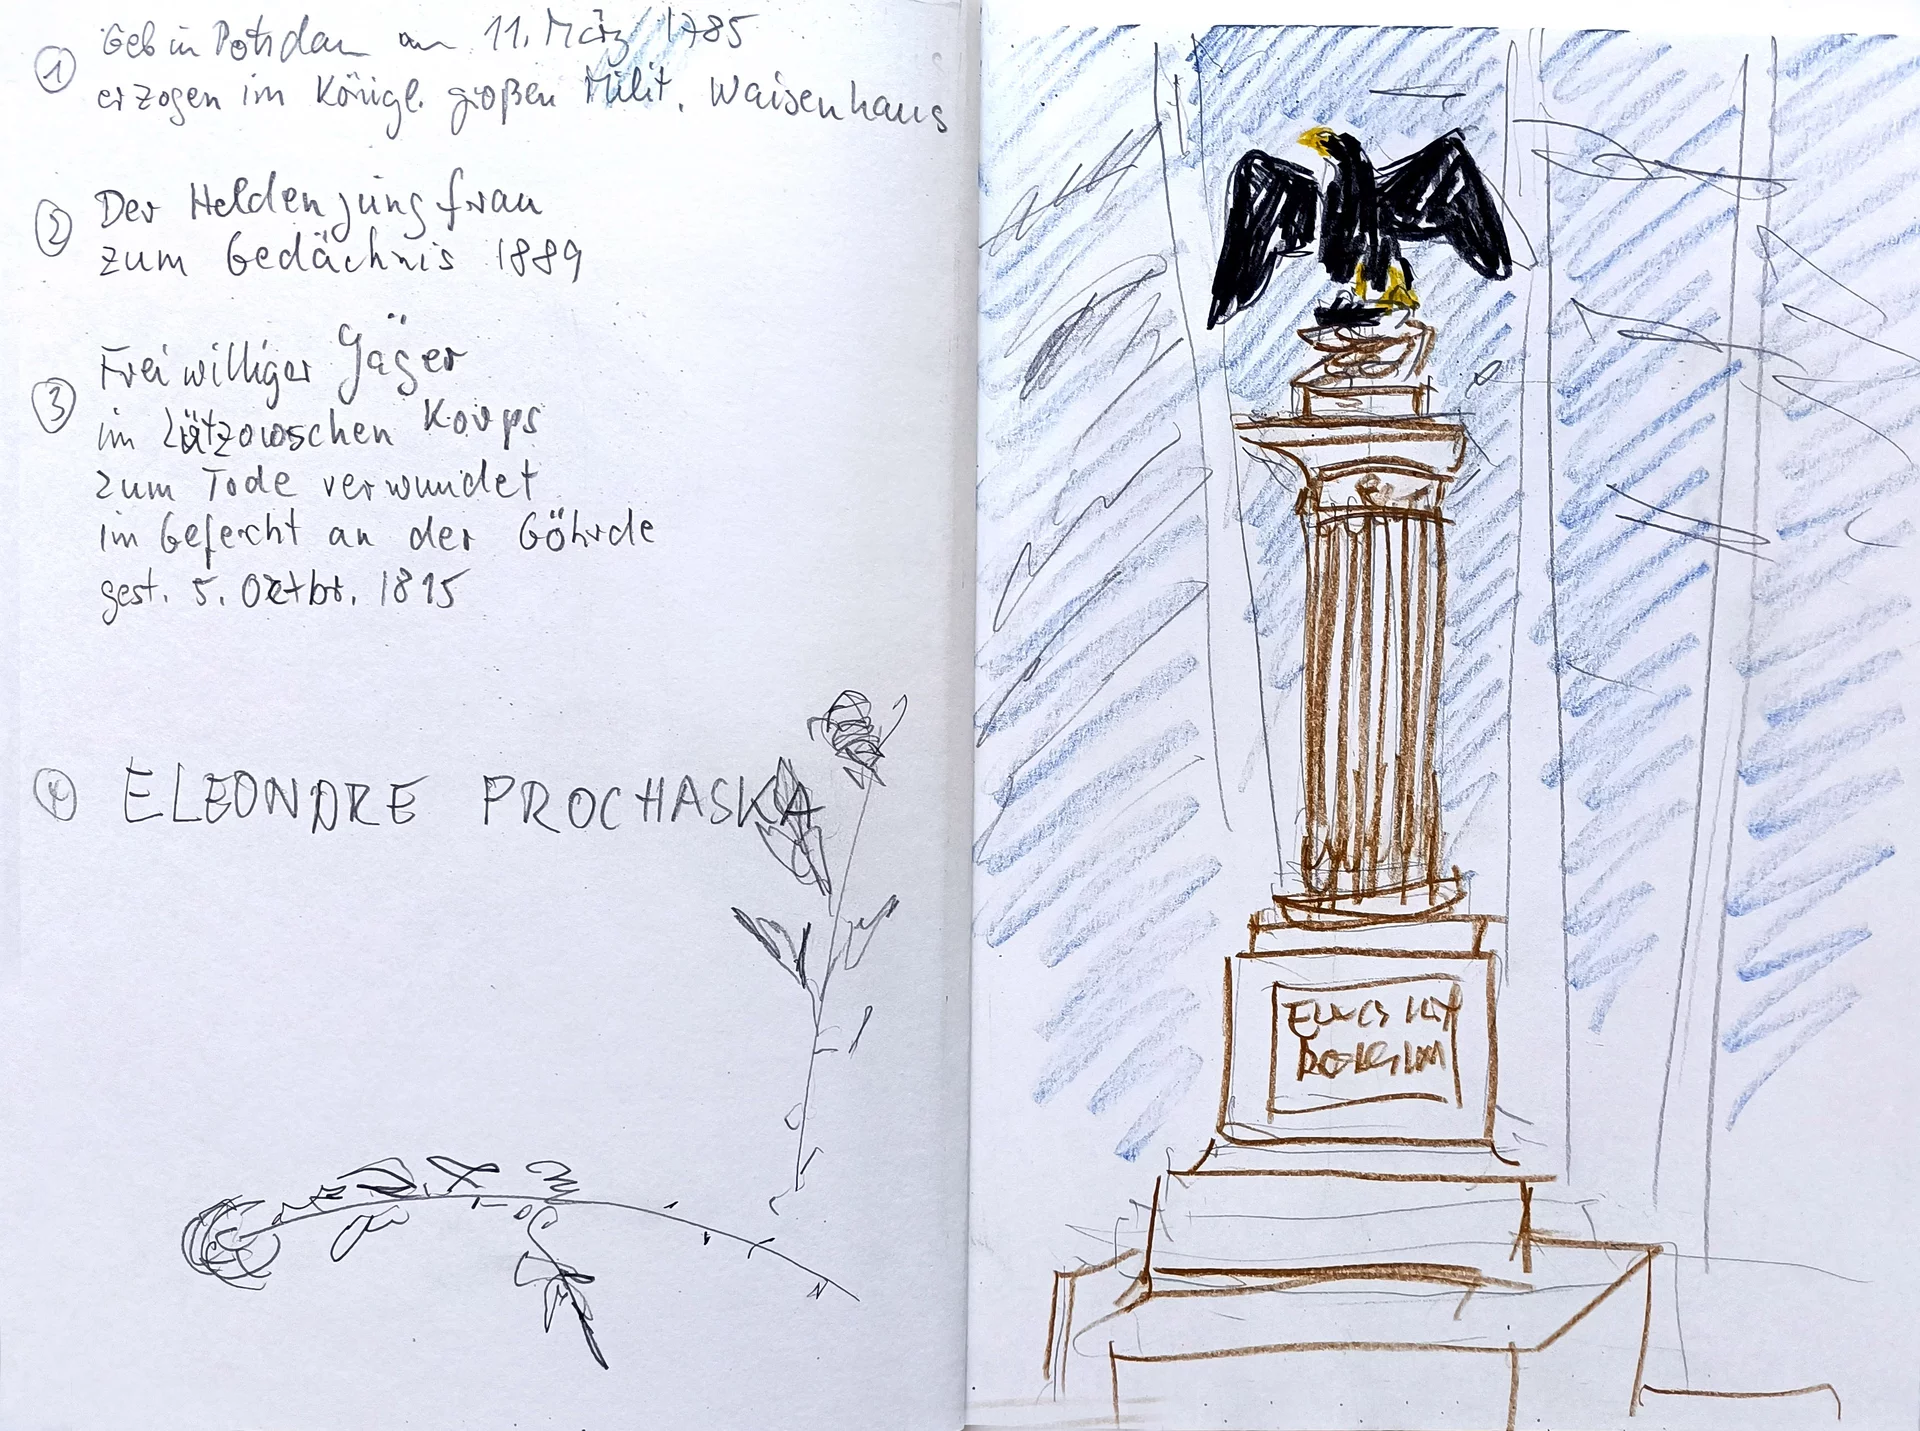 ① Geb in Potsdam am 11. März 1785
erzogen im Königl. großen Milit. Waisenhaus
② Der Heldenjungfrau
zum Gedächnis 1889
③ Freiwilliger Jäger
im Lützowschen Korps
zum Tode verwundet
im Gefecht an der Göhrde
gest. 5. Oktbr. 1815
④ ELEONORE PROCHASKA